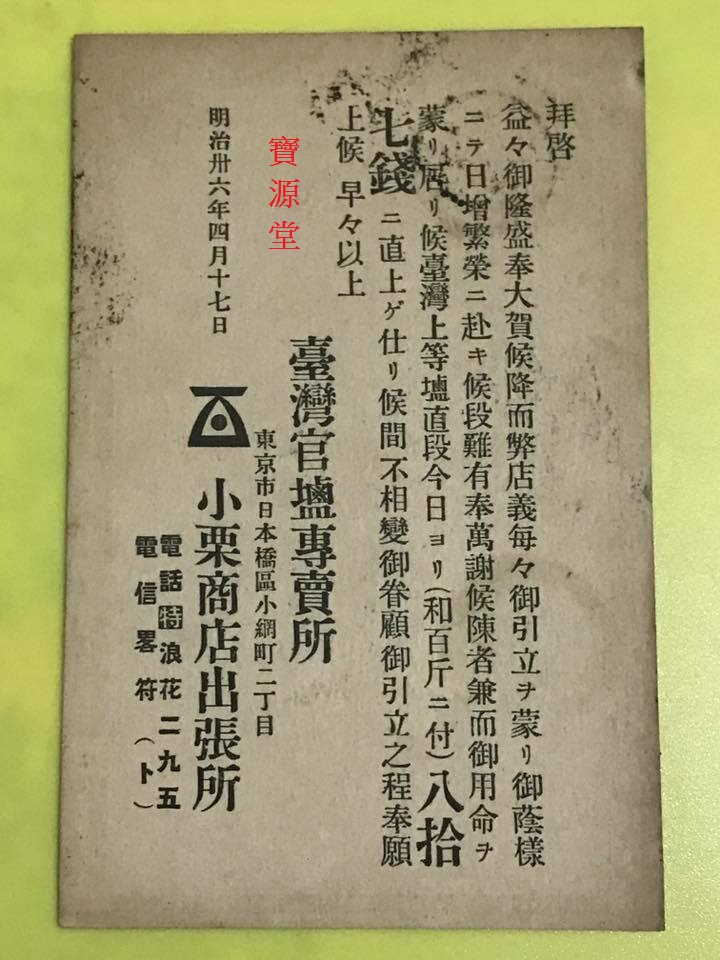 拜啓
益々御隆盛奉大賀候降而弊店義毎々御引立ヲ蒙リ御蔭樣
ニテ日增繁榮ニ赴キ候段難有奉萬謝候陳者兼而御用命ヲ
蒙リ居リ候臺灣上等塩直段今日ヨリ(和百斤ニ付)八拾
七錢ニ直上ゲ仕リ候間不相變御眷顧御引立之程奉願
上候 早々以上
寶源堂
明治卅六年四月十七日
臺灣官塩專賣所
東京市日本橋區小網町二丁目
小栗商店出張所
電話特浪花二九五
電信畧符(ト)